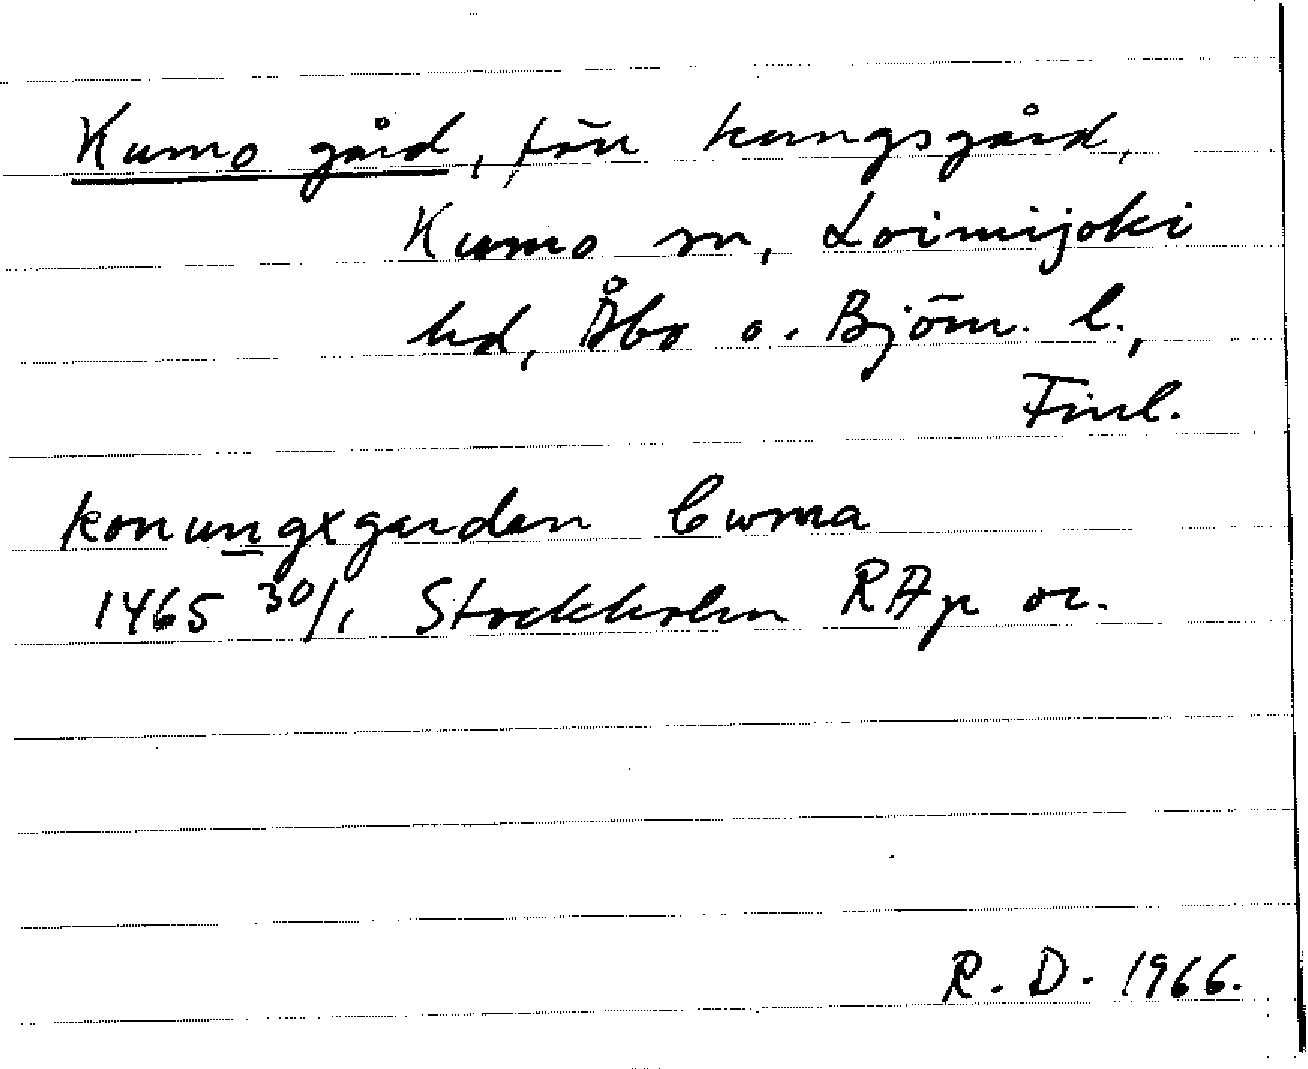 Kumo gård, förr kungsgård,
Kumo sn, Loimijoki
hd, Åbo o. Björn. l.,
Finl.
konungxgarden Cwma
1465 30/1 Stockholm RAp or.
R. D. 1966.